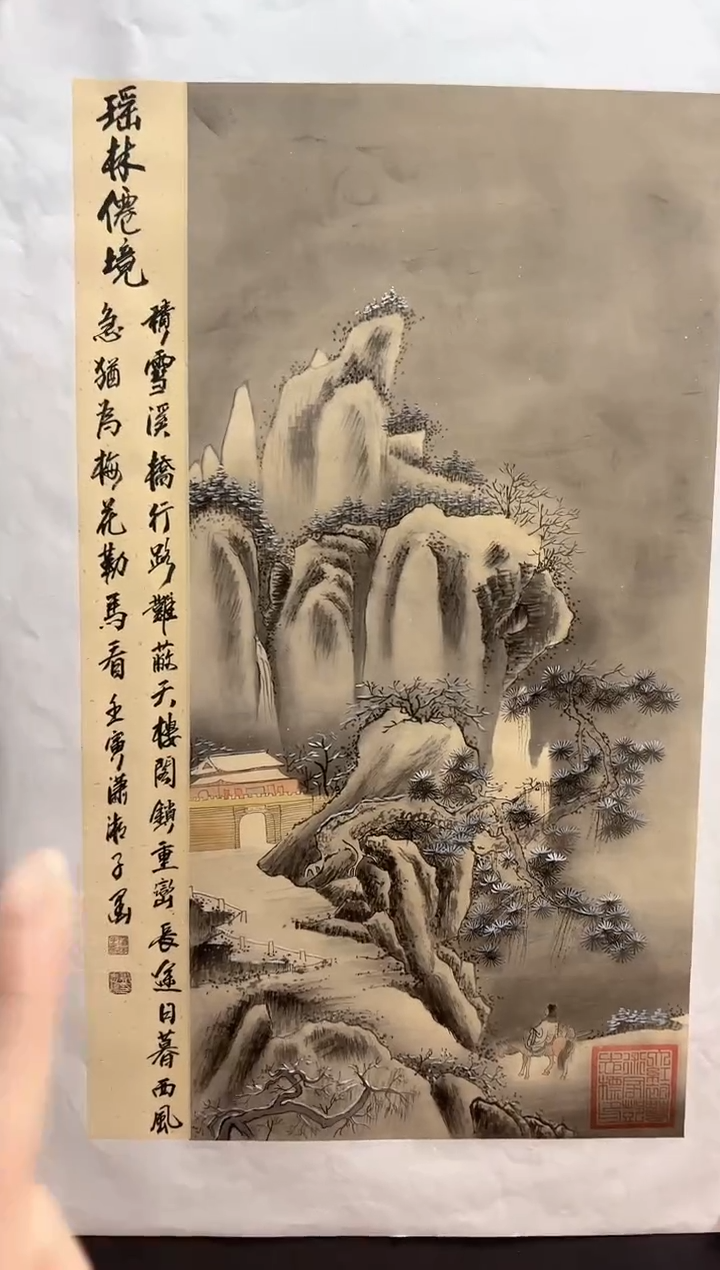 瑶林僊境
積雪溪橋行路難蔽天樓閣鎖重巒長途日暮西風
急猶為梅花勒馬看壬寅瀟湘子